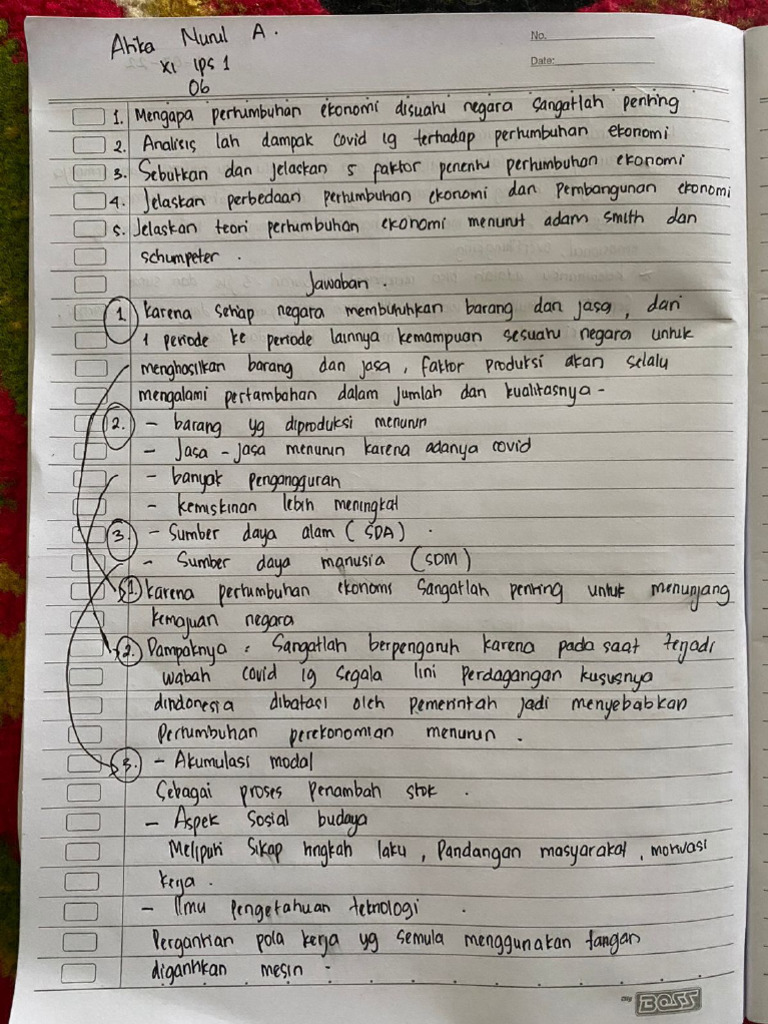 Atika Nurul A.
XI IPS 1
06
No.
Date:
1. Mengapa pertumbuhan ekonomi disuatu negara sangatlah penting
2. Analisis lah dampak covid 19 terhadap pertumbuhan ekonomi
3. Sebutkan dan jelaskan 5 faktor penentu pertumbuhan ekonomi
4. Jelaskan perbedaan pertumbuhan ekonomi dan Pembangunan ekonomi
5. Jelaskan teori pertumbuhan ekonomi menurut adam smith dan
schumpeter.
Jawaban.
1. Karena setiap negara membutuhkan barang dan jasa, dari
1 periode ke periode lainnya kemampuan sesuatu negara untuk
menghasilkan barang dan jasa, faktor produksi akan selalu
mengalami pertambahan dalam jumlah dan kualitasnya -
2. - barang yg diproduksi menurun
- Jasa - jasa menurun karena adanya covid
- banyak pengangguran
- kemiskinan lebih meningkat
3. - Sumber daya alam (SDA).
- Sumber daya manusia (SDM)
1. Karena pertumbuhan ekonomi sangatlah penting untuk menunjang
kemajuan negara
2. Dampaknya : Sangatlah berpengaruh karena pada saat terjadi
wabah covid 19 segala lini perdagangan kususnya
diindonesia dibatasi oleh pemerintah jadi menyebabkan
Pertumbuhan perekonomian menurun.
3. - Akumulasi modal
Sebagai proses penambah stok.
- Aspek sosial budaya
Meliputi sikap tingkah laku, Pandangan masyarakat, motivasi
kerja.
- Ilmu Pengetahuan teknologi.
Pergantian pola kerja yg semula menggunakan tangan
digantikan mesin -
my BOSS